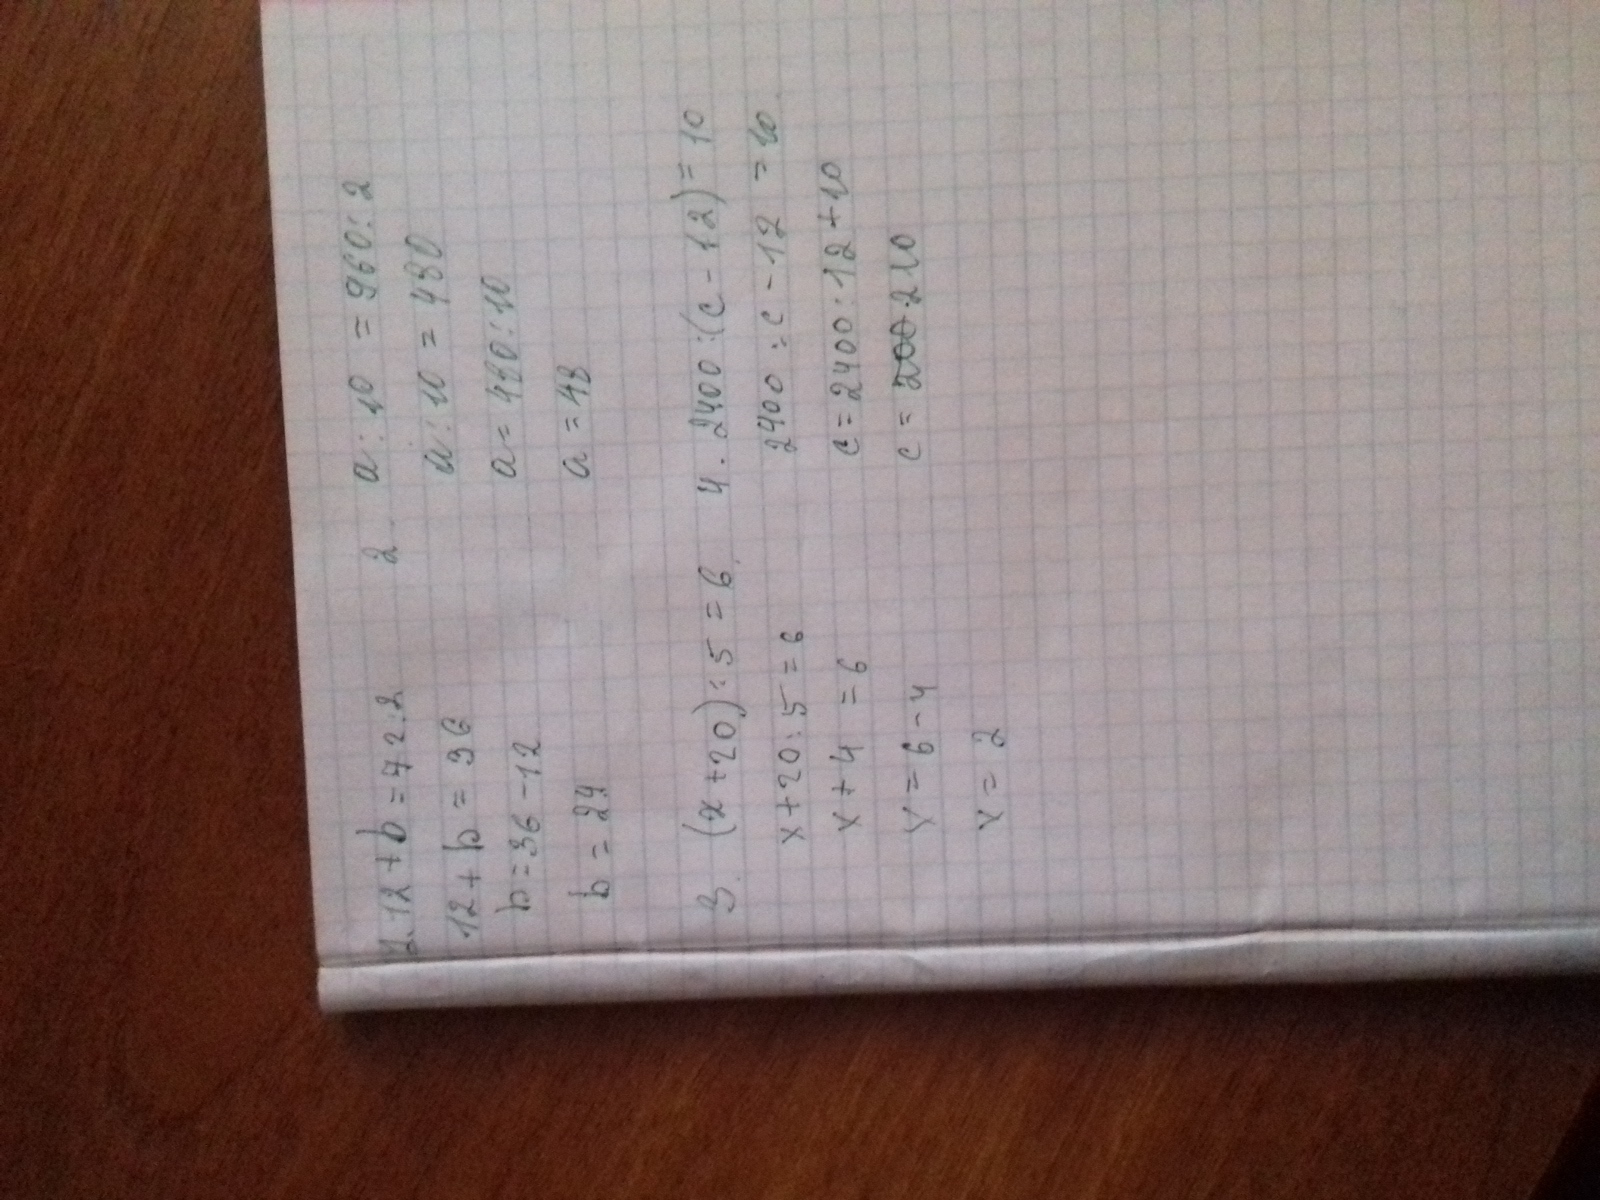 1. 12 + b = 72 : 2
12 + b = 36
b = 36 - 12
b = 24
2 a : 10 = 960 : 2
a : 10 = 480
a = 480 : 10
a = 48
3. (x + 20) : 5 = 6
x + 20 : 5 = 6
x + 4 = 6
x = 6 - 4
x = 2
4. 2400 : (c - 12) = 10
2400 : c - 12 = 10
c = 2400 : 12 + 10
c = 210